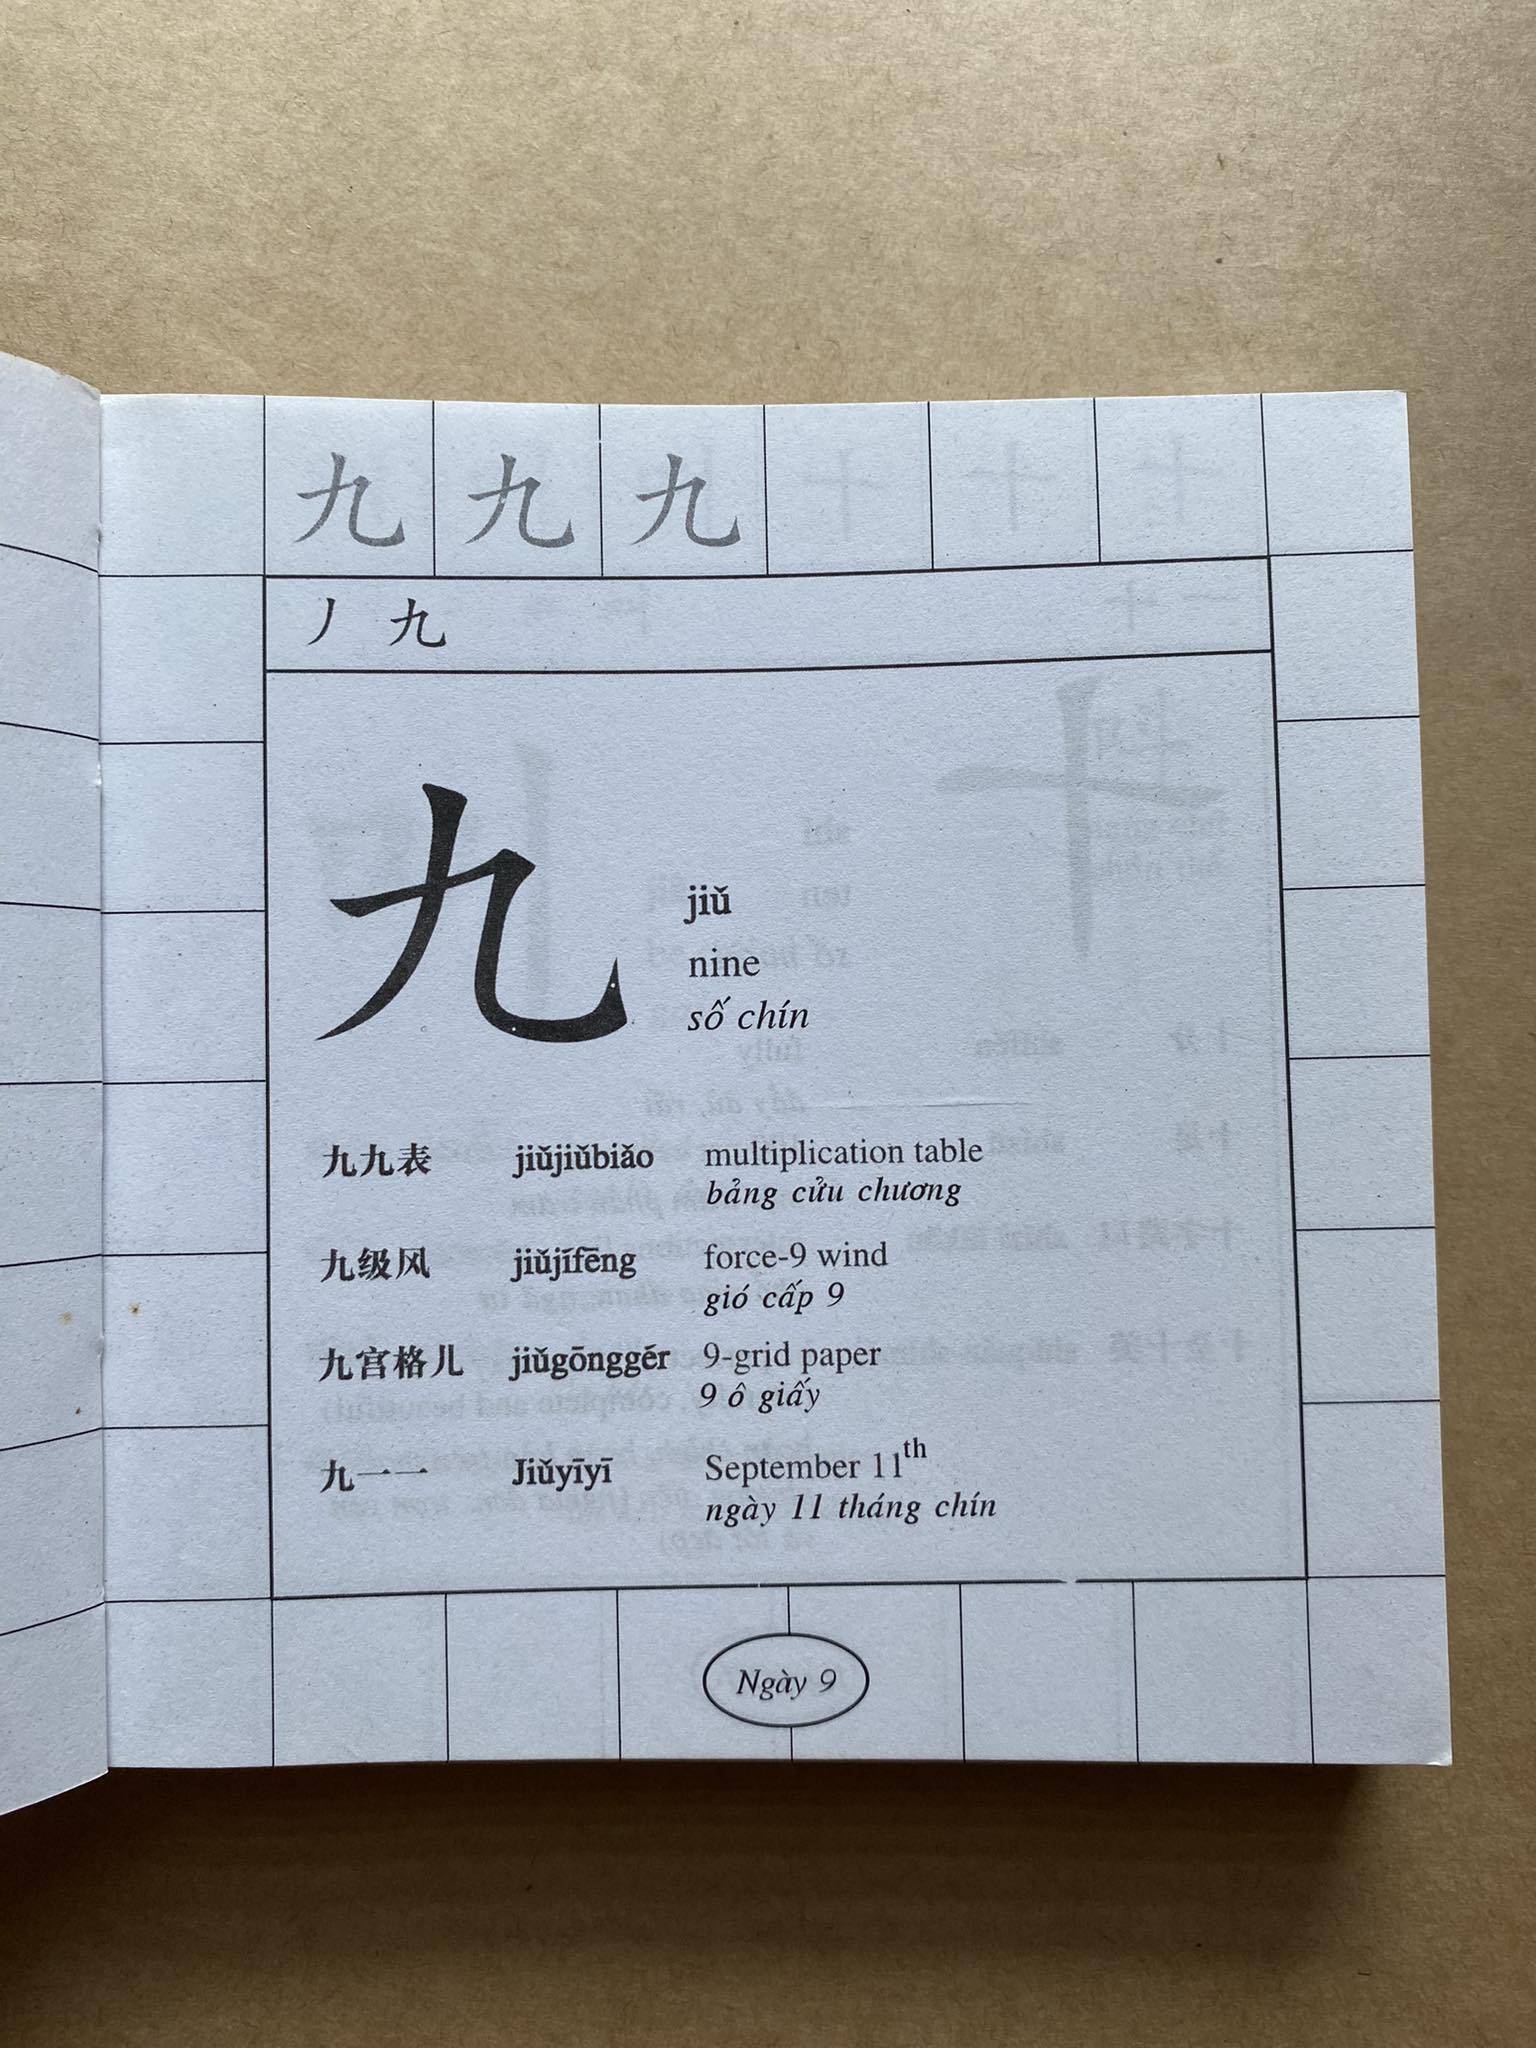 九 九 九
丿 九
九
jiǔ
nine
số chín
九九表 jiǔjiǔbiǎo multiplication table
bảng cửu chương
九级风 jiǔjífēng force-9 wind
gió cấp 9
九宫格儿 jiǔgōnggér 9-grid paper
9 ô giấy
九一一 Jiǔyīyī September 11th
ngày 11 tháng chín
Ngày 9